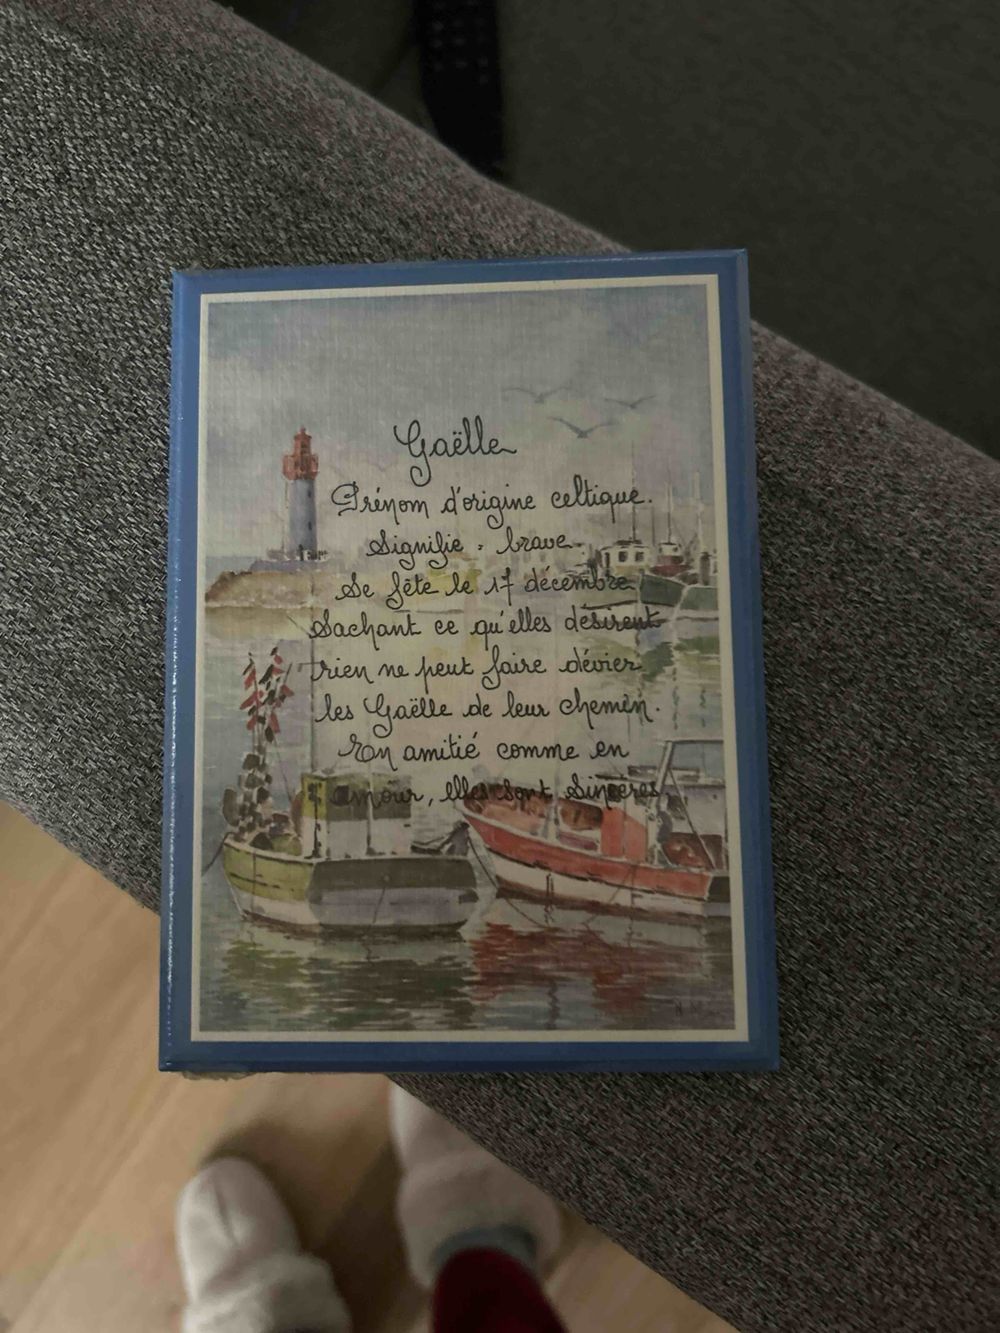 Gaëlle
Prénom d'origine celtique.
Signifie : brave
Se fête le 17 décembre
Sachant ce qu'elles désirent
rien ne peut faire dévier
les Gaëlle de leur chemin.
En amitié comme en
amour, elles sont sincères